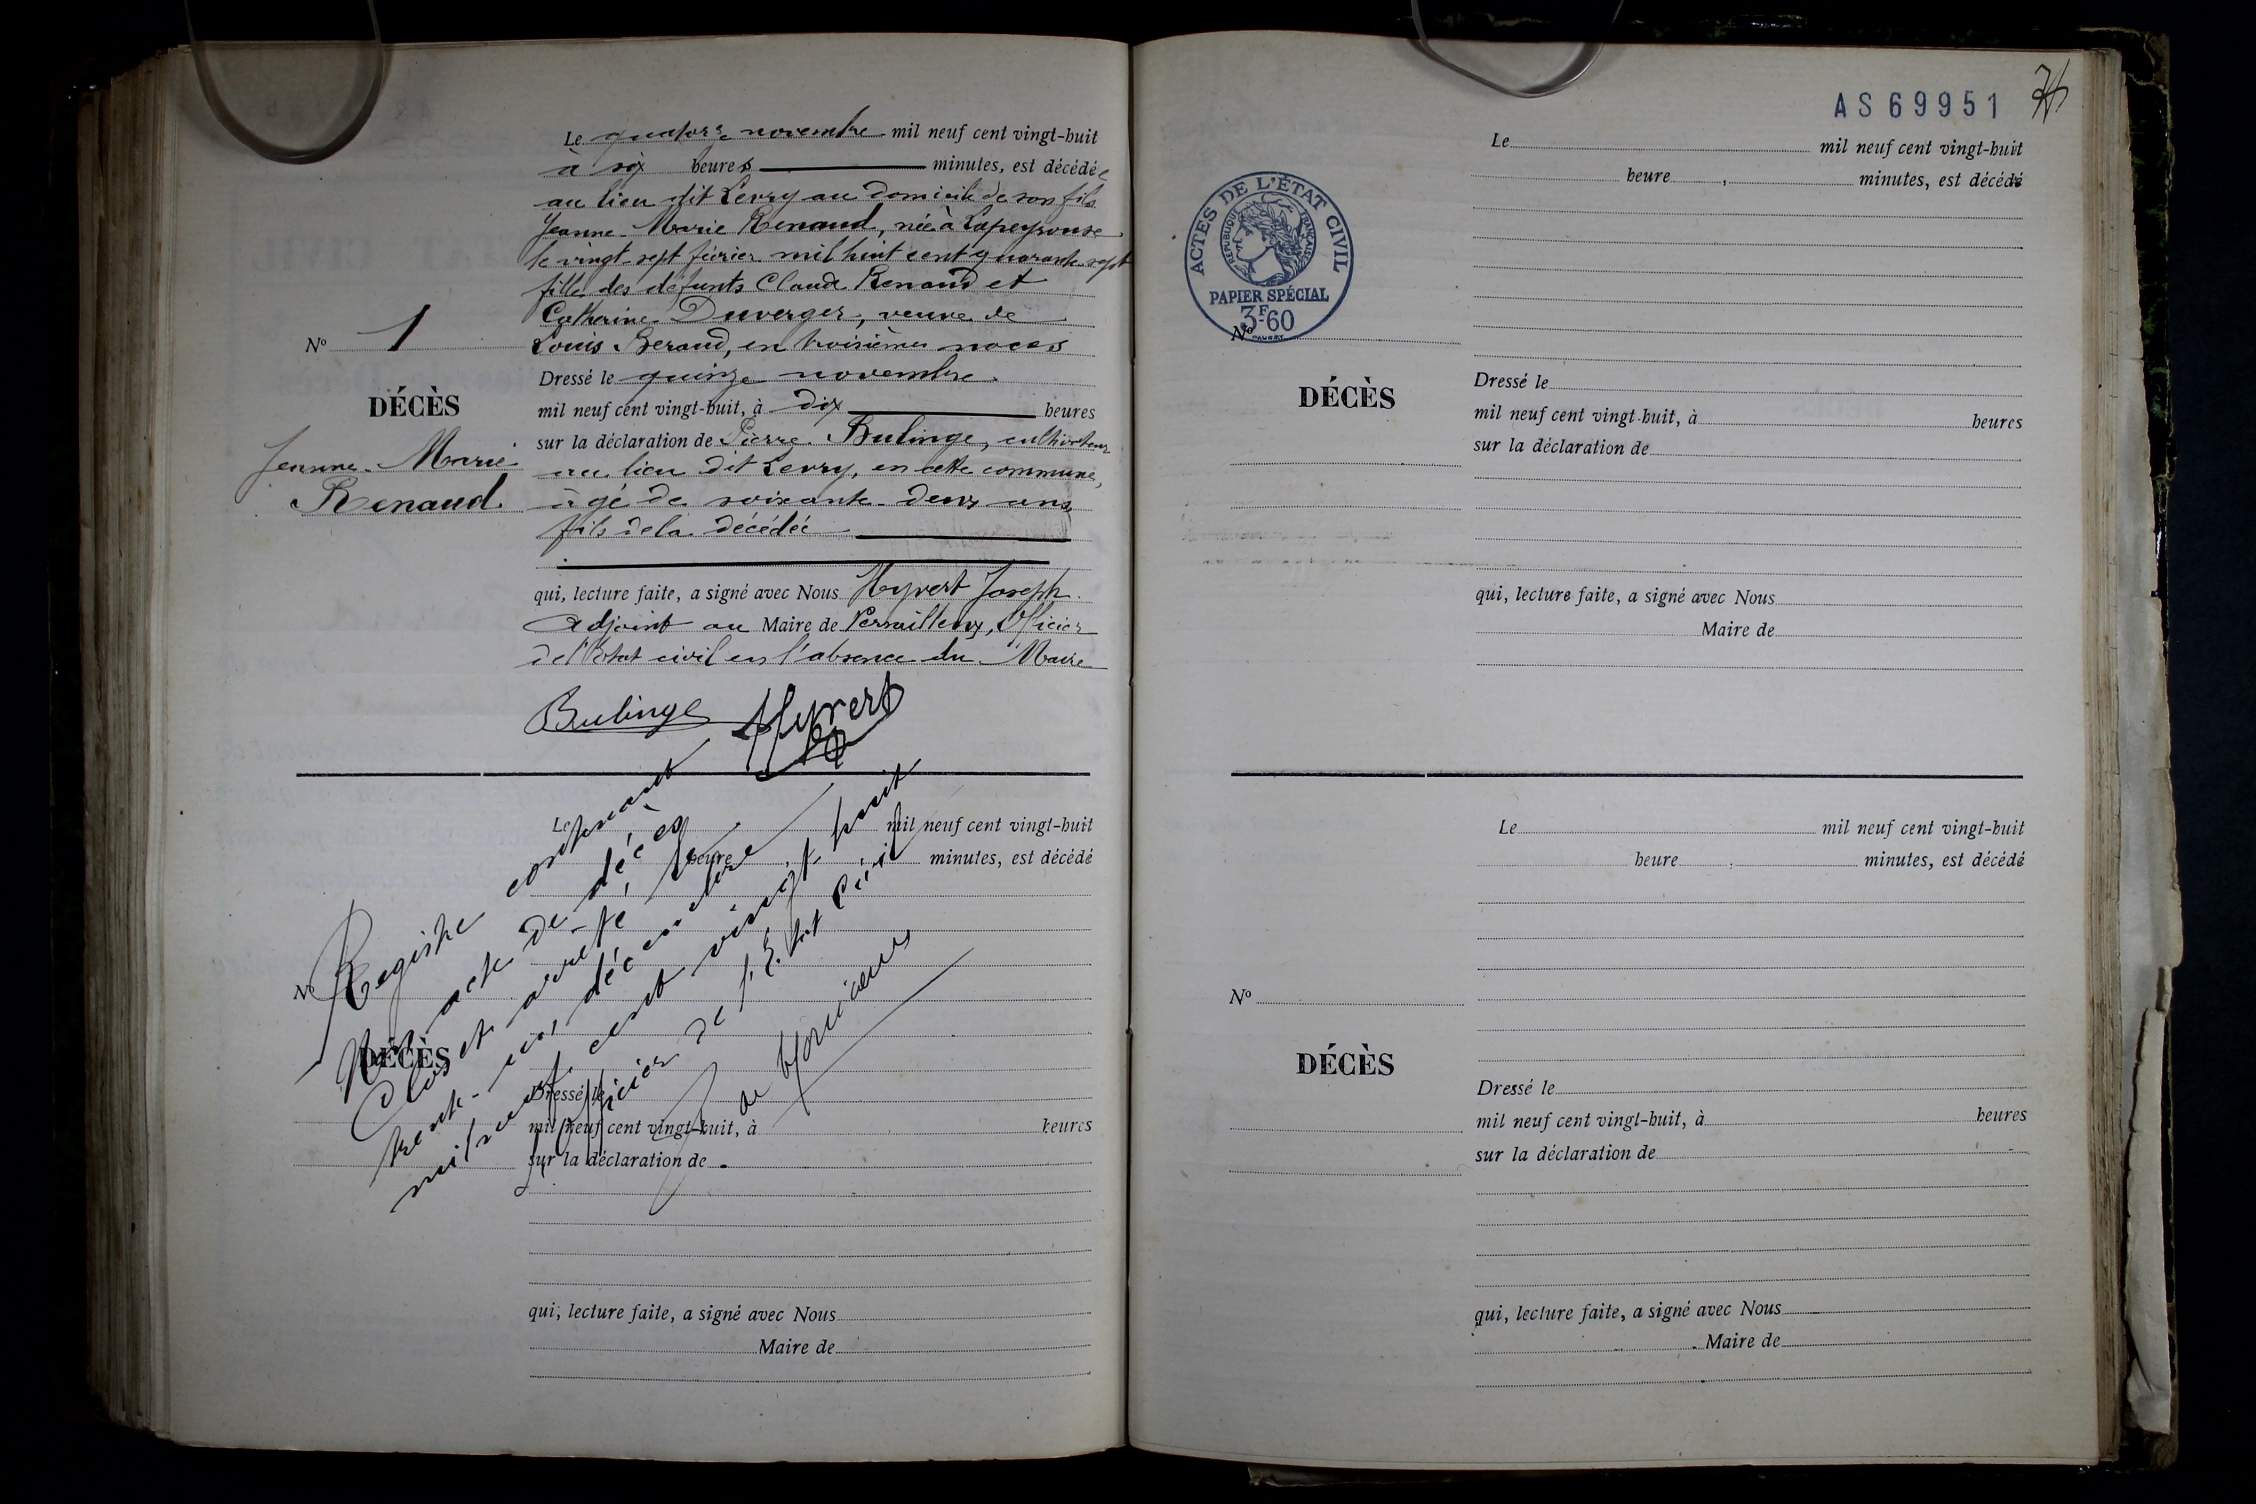 Le quatorze novembre mil neuf cent vingt-huit
à six heures minutes, est décédée
au lieu dit Levry au domicile de son fils
Jeanne-Marie Renaud, née à Lapeyrouse
le vingt-sept février mil huit cent quarante sept
fille des défunts Claude Renaud et
Catherine Duverger, veuve de
Louis Beraud, en troisièmes noces
Nº 1
DÉCÈS
Jeanne-Marie
Renaud
Dressé le quinze novembre
mil neuf cent vingt-huit, à dix heures
sur la déclaration de Pierre Bulinge, cultivateur
au lieu dit Levry, en cette commune,
âgé de soixante-deux ans
fils de la décédée
qui, lecture faite, a signé avec Nous Hyvert Joseph
adjoint au Maire de Versailleux, Officier
de l'Etat civil en l'absence du Maire
Bulinge Hyvert
Le mil neuf cent vingt-huit
heure minutes, est décédé
Nº
DÉCÈS
Dressé le
mil neuf cent vingt-huit, à heures
sur la déclaration de
qui, lecture faite, a signé avec Nous
Maire de
Registre contenant
acte de décès
Clos et arrêté, le
trente-un décembre
mil neuf cent vingt huit
L'Officier de l'Etat Civil
AS69951
Le mil neuf cent vingt-huit
heure minutes, est décédé
ACTES DE L'ÉTAT CIVIL
RÉPUBLIQUE FRANÇAISE
PAPIER SPÉCIAL
3F60
Nº
DÉCÈS
Dressé le
mil neuf cent vingt-huit, à heures
sur la déclaration de
qui, lecture faite, a signé avec Nous
Maire de
Le mil neuf cent vingt-huit
heure minutes, est décédé
Nº
DÉCÈS
Dressé le
mil neuf cent vingt-huit, à heures
sur la déclaration de
qui, lecture faite, a signé avec Nous
Maire de